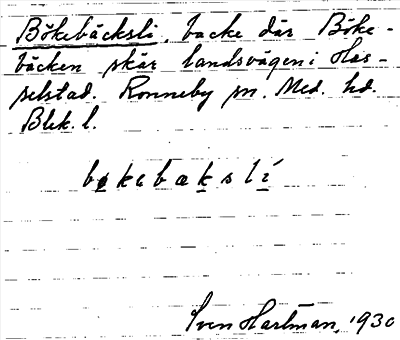 Bökebäcksli, backe där Böke-
bäcken skär landsvägen i Has-
selstad. Ronneby sn. Med. hd.
Blek. l.
bøkebæksli
Sven Hartman, 1930